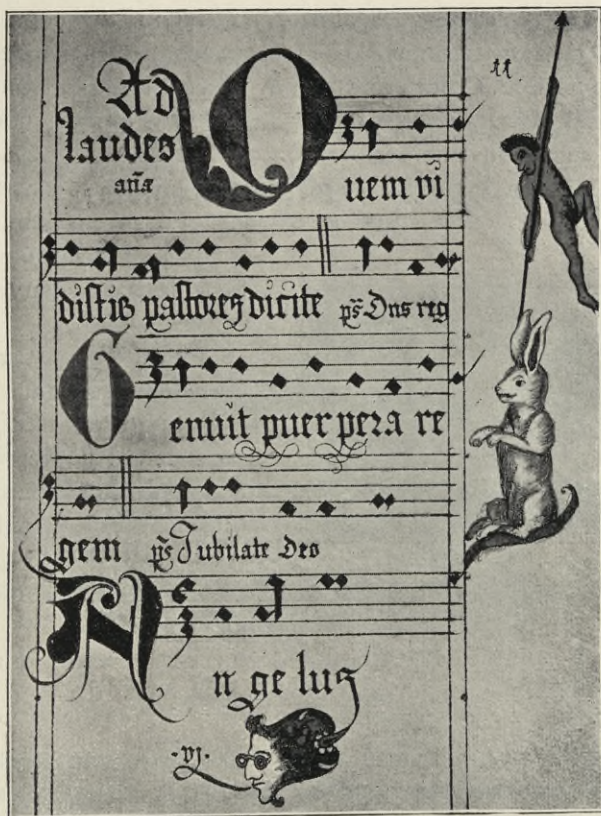 Ad
laudes
añæ
Quem vi
distis pastores dicite ps̄ Dns reg
Genuit puerpera re
gem ps̄ Jubilate Deo
Angelus
·vj·